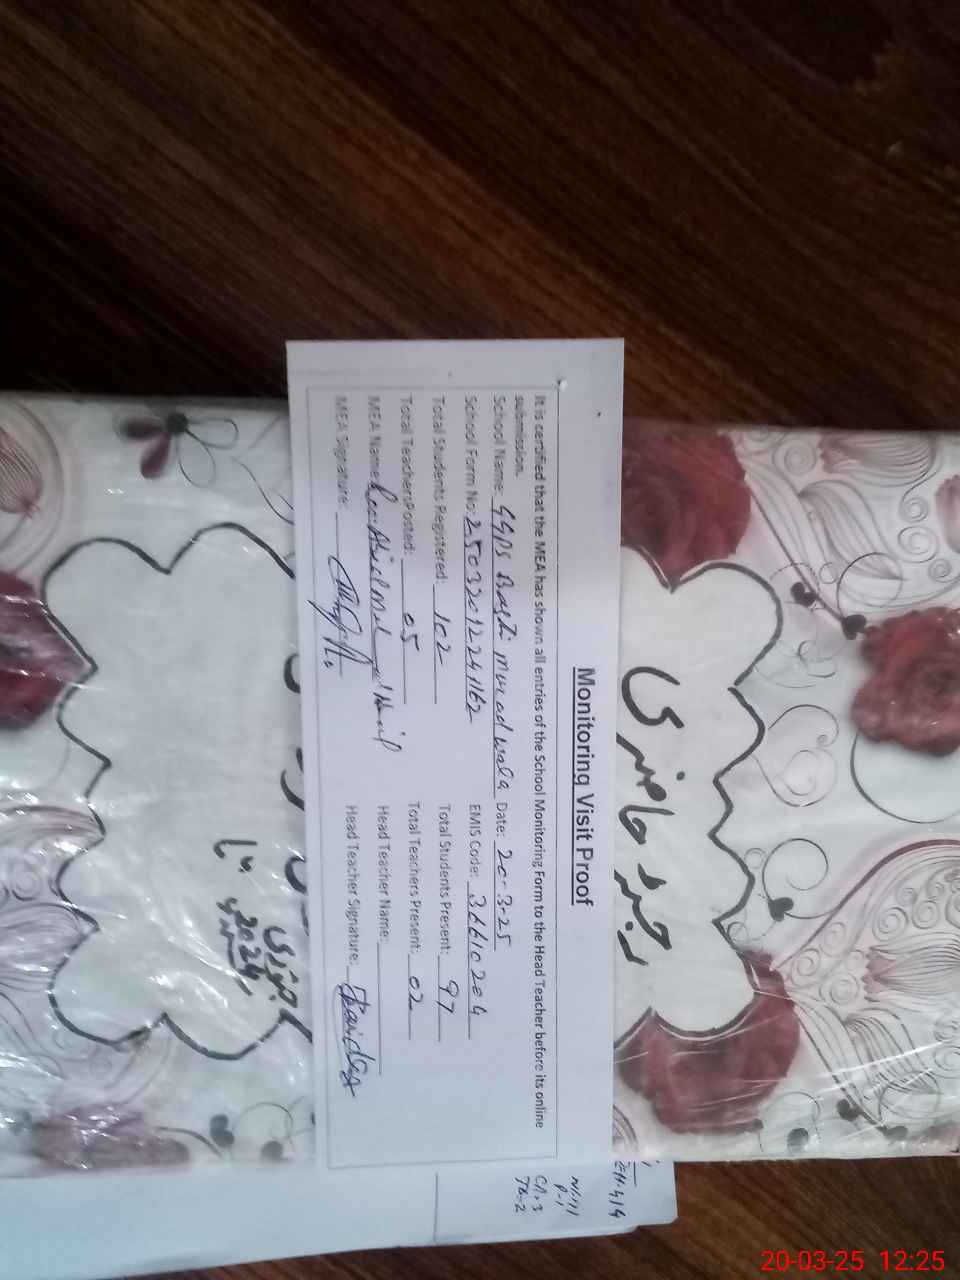 Monitoring Visit Proof
It is certified that the MEA has shown all entries of the School Monitoring Form to the Head Teacher before its online
submission.
School Name: GGPS Basti Murad wala Date: 20-3-25
School Form No: 2503201224162 EMIS Code: 36610204
Total Students Registered: 102 Total Students Present: 97
Total Teachers Posted: 05 Total Teachers Present: 02
MEA Name: Head Teacher Name:
MEA Signature: Head Teacher Signature:
رجسٹر حاضری
جنوری
2024
تا
P-1
CA, 3
20-03-25 12:25